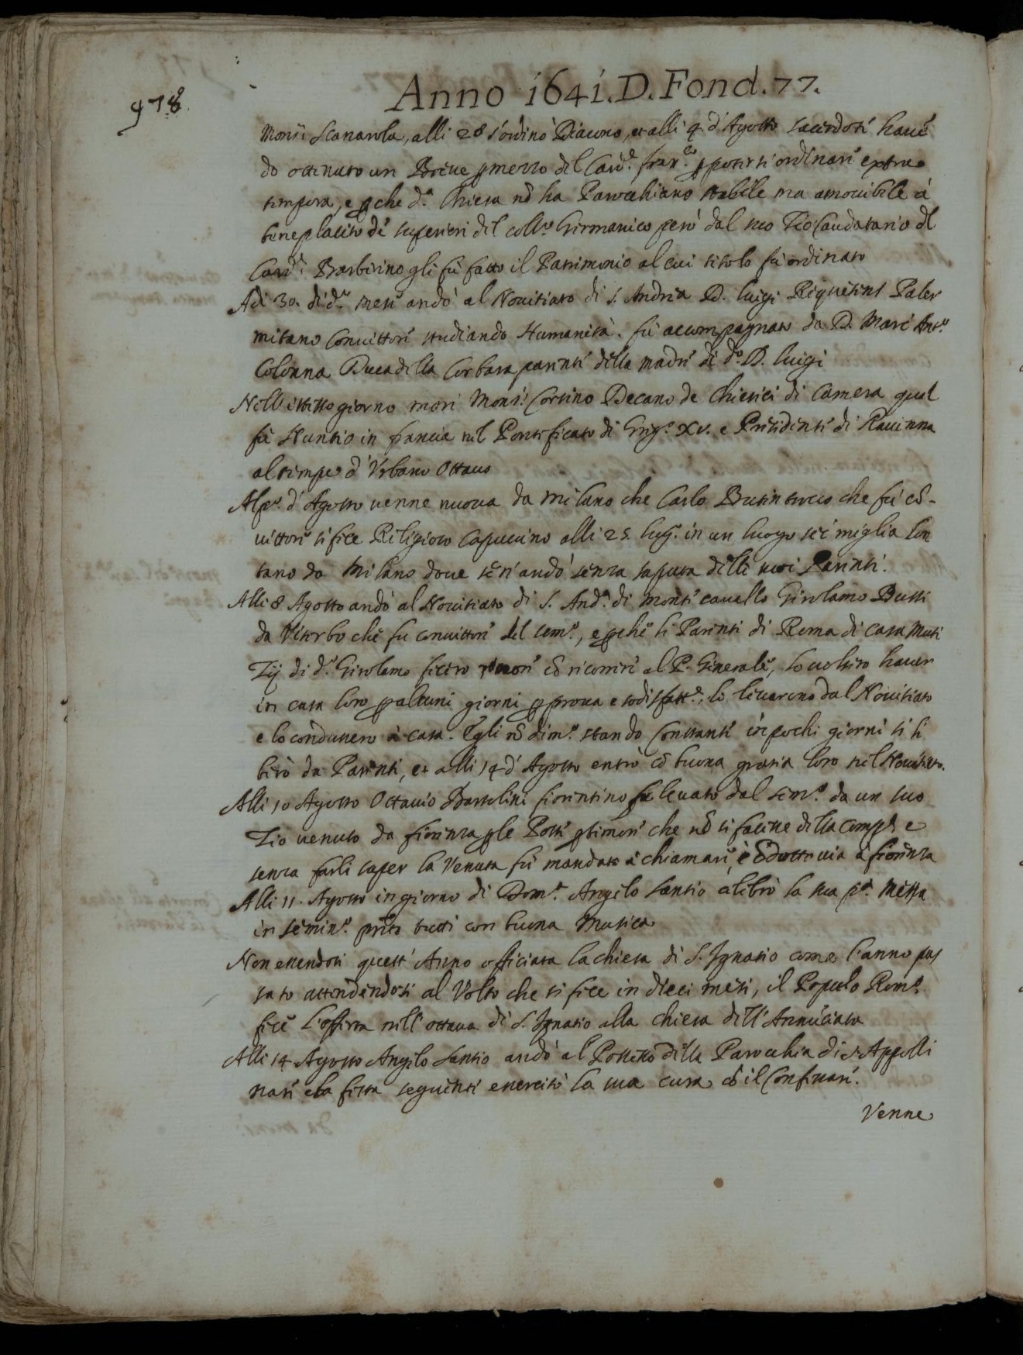 978.
Anno 1641. D. Fond. 77.
Mons.r Scanarola, alli 28 s'ordinò Diacono, et alli 4 d'Agosto sacerdote havē
do ottenuto un Breve p mezzo del Car.le Fran.co p potersi ordinare extra
tempora, e pche d.a Chiesa nō ha Parochiano stabile ma amovibile à
beneplacito de superiori del coll.o Germanico però dal suo Zio Caudatario del
Card.l Barberino gli fù fatto il Patrimonio al cui titolo fù ordinato
Adi 30 di d.o mese andò al Novitiato di S. Andrea D. Luigi Requisens Paler
mitano Convittore studiando Humanità. fù accompagnato da D. Marc' Ant.o
Colonna Duca della Corbara parente della madre di d.o D. Luigi
Nell'istesso giorno morì Mons.r Corsino Decano de Chierici di Camera qual
fù Nuntio in francia nel Pontificato di Greg.o XV. e Presidente di Ravenna
al tempo d'Urbano Ottavo
Al p.o d'Agosto venne nuova da Milano che Carlo che fù cō-
vittore si fece Religioso Capuccino alli 25 lug. in un luogo sei miglia lon
tano da Milano dove se n'andò senza saputa delli suoi Parenti.
Alli 8 Agosto andò al Novitiato di S. And.a di Monte cavallo Girolamo Bussi
da Viterbo che fu convittore del sem.o, e pchè li Parenti di Roma di casa Muti
Zij di d.o Girolamo fecero rumore cō ricorrere al P. Generale, lo volsero haver
in casa loro p alcuni giorni p prova e sodisfatt.e, lo levarono dal Novitiato
e lo condussero à casa. Egli nō dim.o stando Constante in pochi giorni si li
berò da Parenti, et alli 14 d'Agosto entrò cō buona gratia loro nel Novitiato.
Alli 10 Agosto Ottavio Bartolini fiorentino fu levato dal sem.o da un suo
Zio venuto da fiorenza p le Poste p timore che nō si facesse della Comp.a e
senza farli saper la venuta fù mandato à chiamare, è cōdotto via à fiorenza
Alli 11. Agosto in giorno di Dom.ca Angelo Santio celebrò la sua p.a Messa
in semin.o psenti tutti con buona Musica
Non essendosi quest'Anno officiata la chiesa di S. Ignatio come l'anno pas
sato attendendosi al Volto che si fece in dieci mesi, il Popolo Rom.o
fece l'offerta nell'ottava di S. Ignatio alla chiesa dell'Annūciata
Alli 14 Agosto Angelo Santio andò al Possesso della Parochia di S. Appolli
nare e la festa seguente esercitò la sua cura cō il Confessare.
Venne